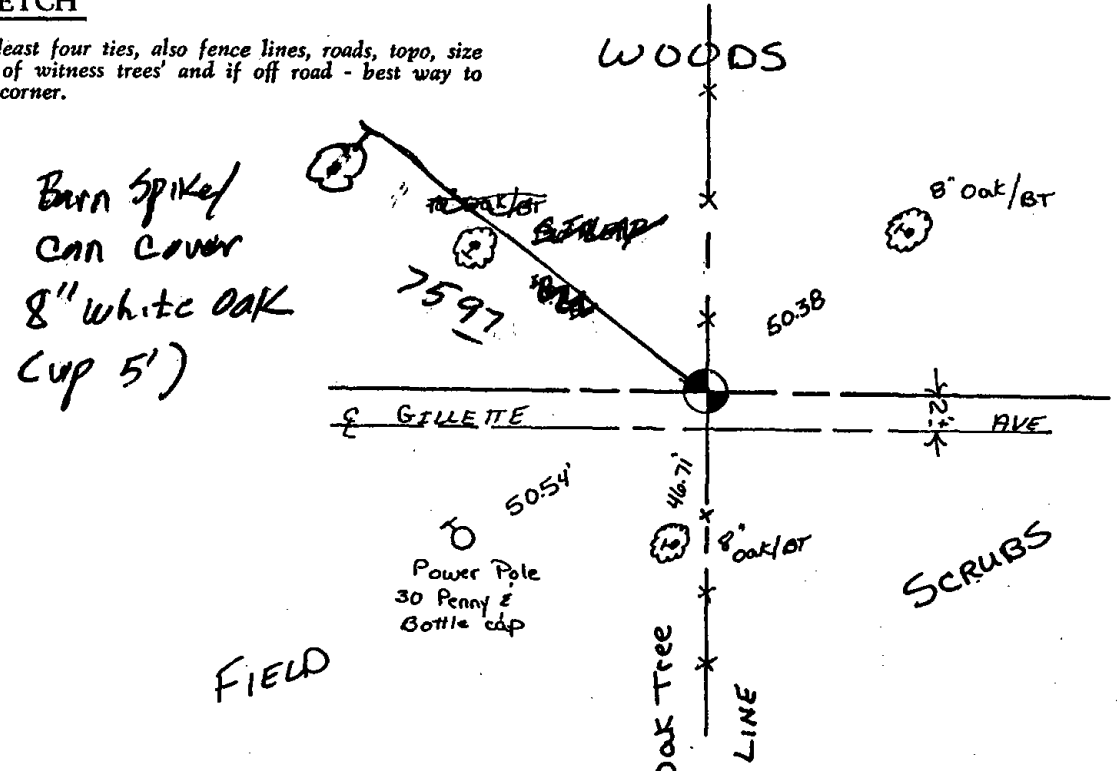 ETCH
least four ties, also fence lines, roads, topo, size
of witness trees' and if off road - best way to
corner.
WOODS
Barn Spike/
Can Cover
8" white Oak
(up 5')
8" Oak/BT
7597
50.38
℄ GILLETTE AVE
50.54'
46.71'
8"
Oak/BT
Power Pole
30 Penny &
Bottle cap
SCRUBS
FIELD
Oak Tree
LINE